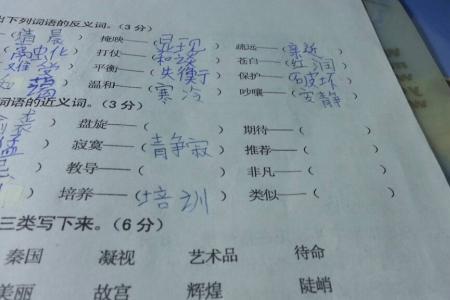 出下列词语的反义词。(3分)
(清晨 掩映——(显现 疏远——(亲近
打仗——(和谈 苍白——(红润
难受 平衡——(失衡) 保护——(破坏
温和——(寒冷 吵嚷——(安静
词语的近义词。(3分)
盘旋——( ) 期待——( )
寂寞——(寂) 推荐——( )
教导——( ) 非凡——( )
培养——(培训) 类似——( )
三类写下来。(6分)
秦国 凝视 艺术品 待命
美丽 故宫 辉煌 陡峭